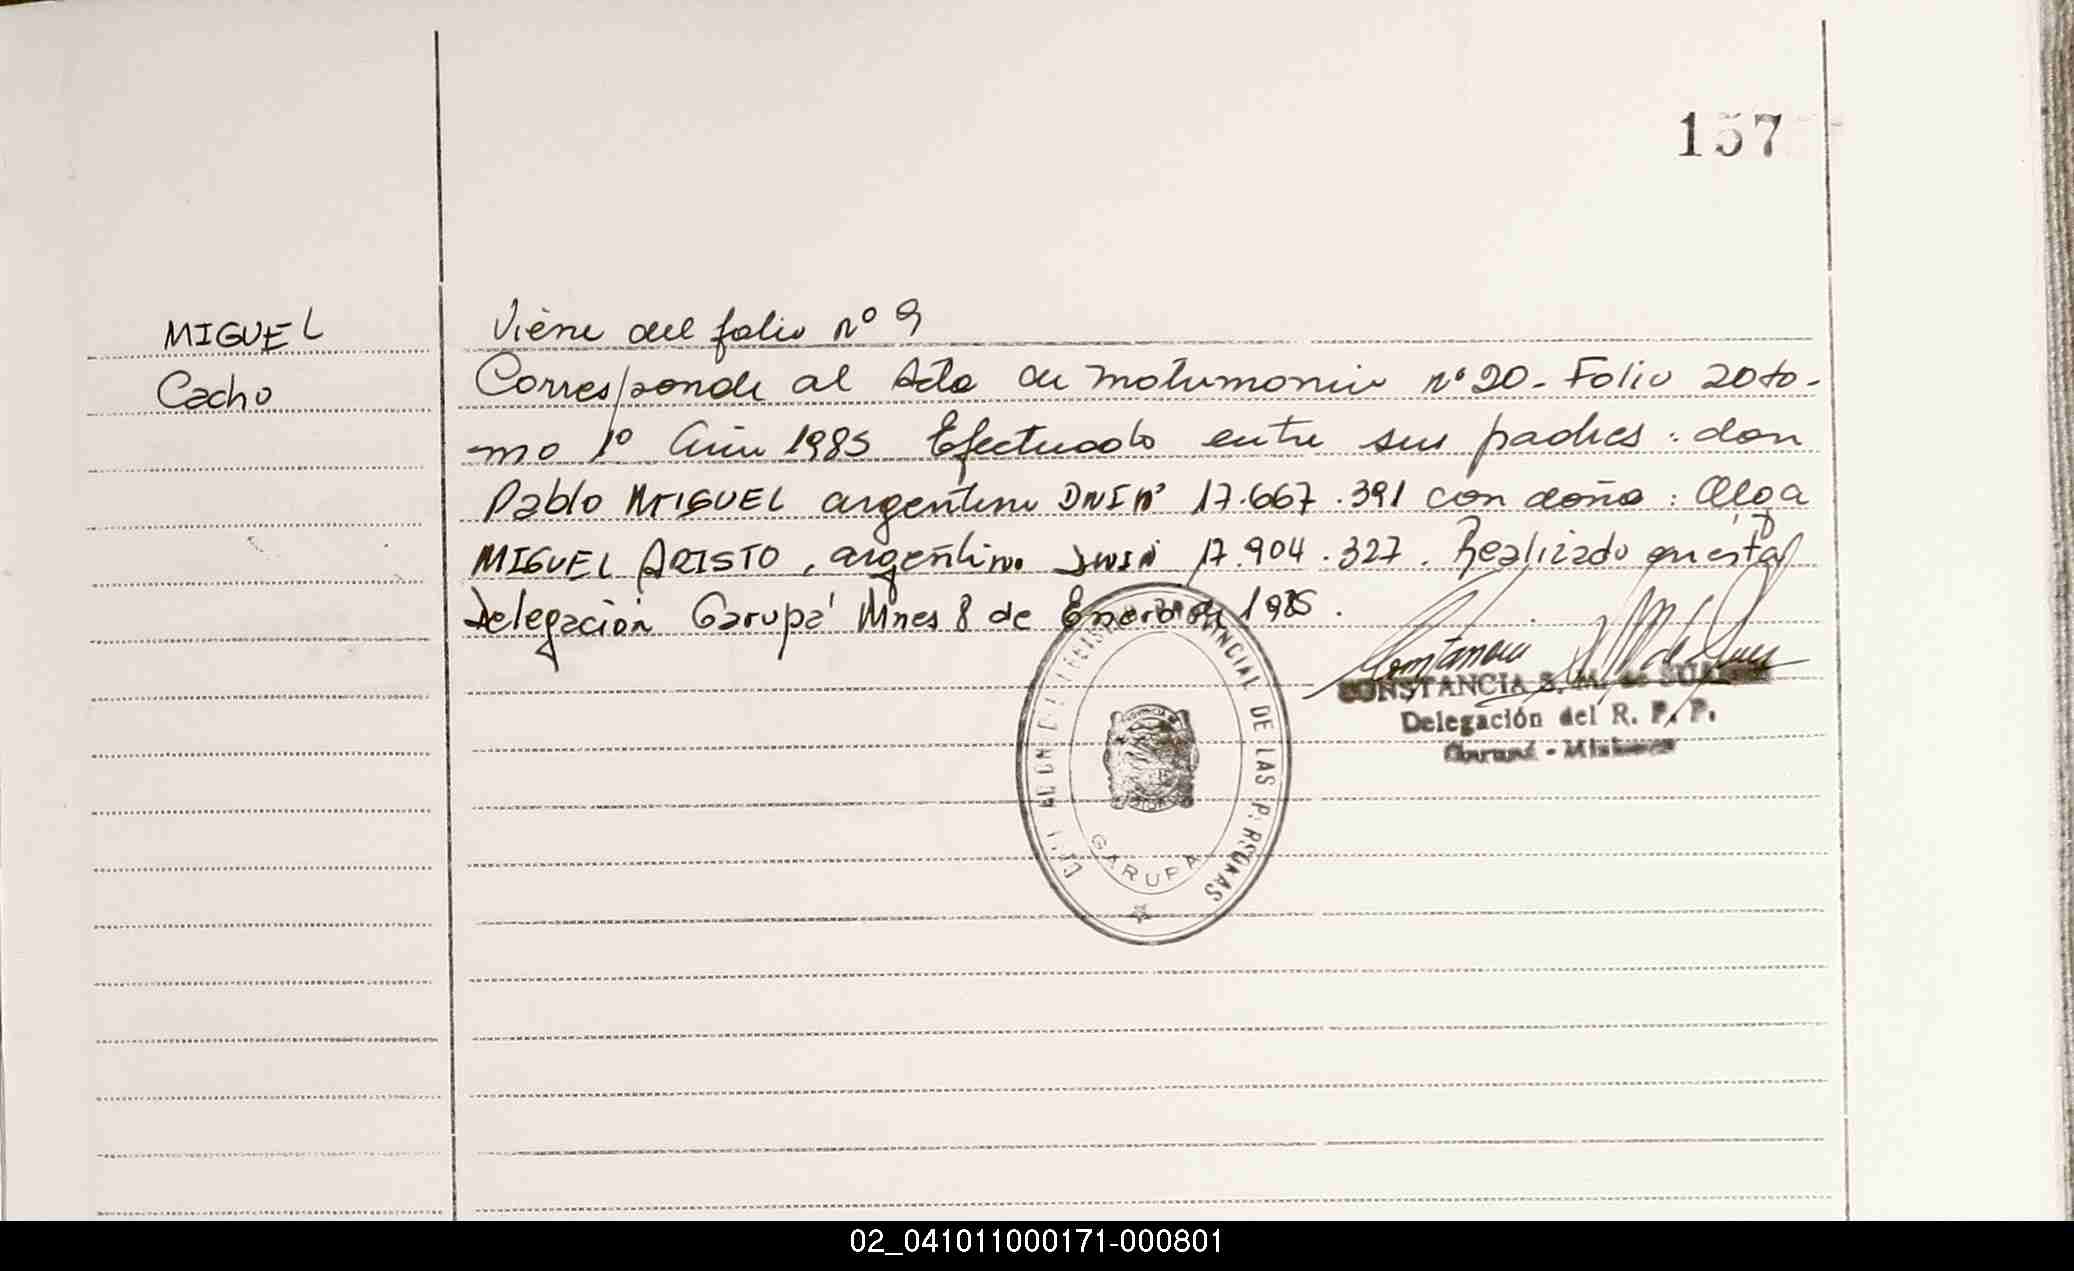 157
MIGUEL
Cacho
Viene del folio nº 9
Corresponde al Acta de matrimonio nº 20 - Folio 20 to-
mo 1º Año 1985 Efectuado entre sus padres : don
Pablo MIGUEL argentino DNI nº 17.667.391 con doña : Olga
MIGUEL ARISTO, argentina DNI nº 17.904.327. Realizado en esta
Delegación Garupá Mnes 8 de Enero de 1985.
CONSTANCIA S. M. de SUAREZ
Delegación del R. P. P.
Garupá - Misiones
PROVINCIAL DE LAS PERSONAS
GARUPA
02_041011000171-000801